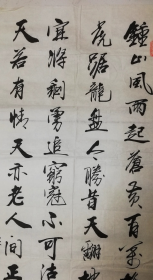 鍾山風雨起蒼黃百萬
虎踞龍盤今勝昔天翻地
宜將剩勇追窮寇不可沽
天若有情天亦老人間正